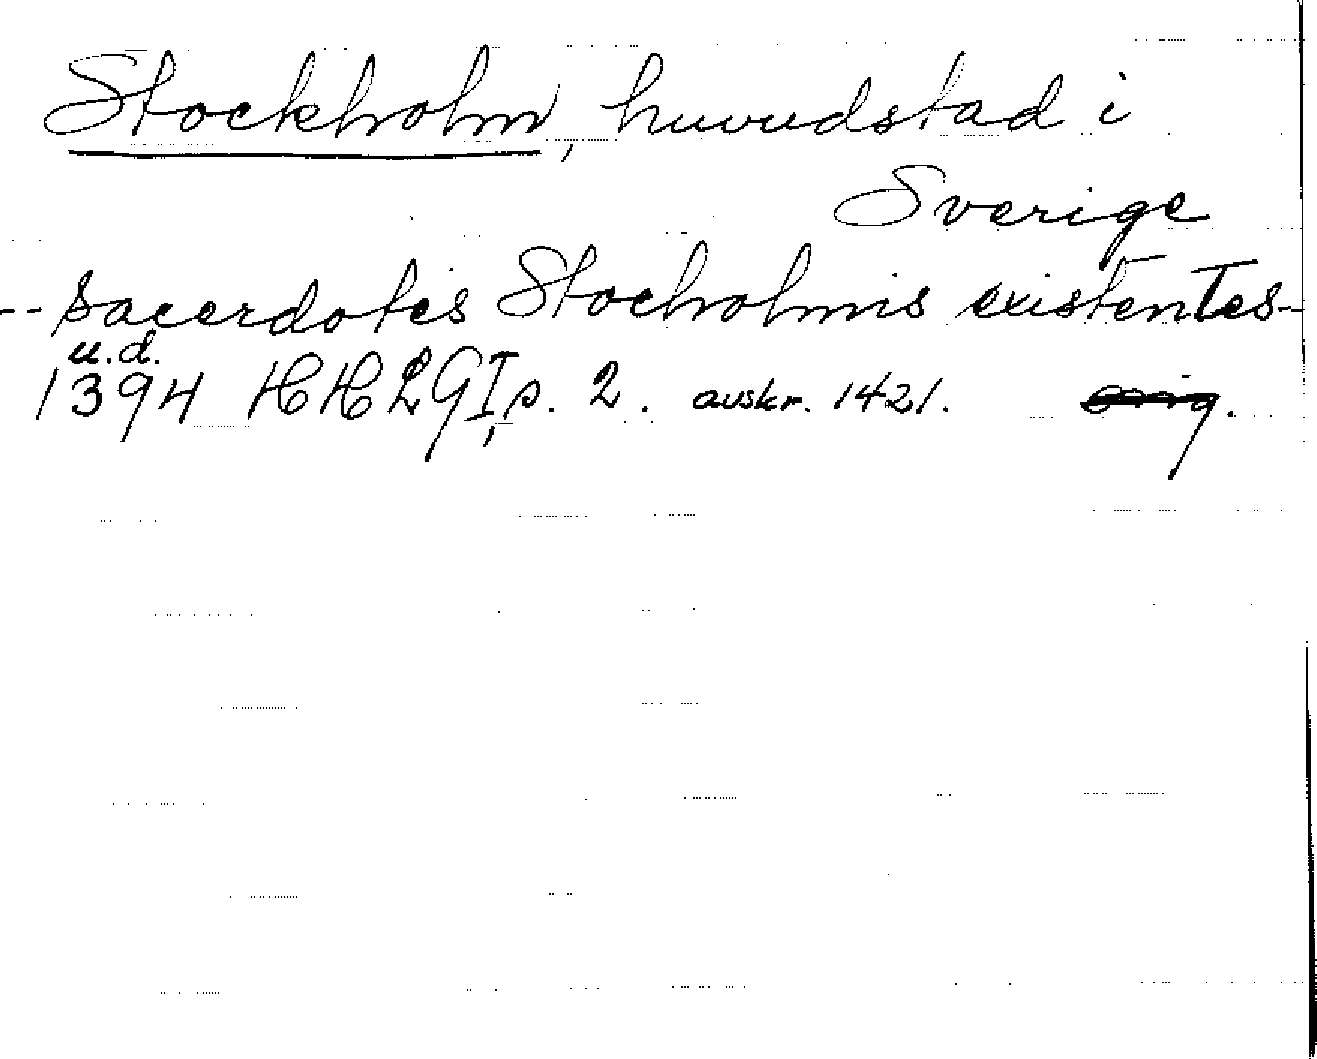 Stockholm, huvudstad i
Sverige
-- sacerdotes Stocholmis existentes -
u.d.
1394 HHLGI, s. 2. avskr. 1421. orig.